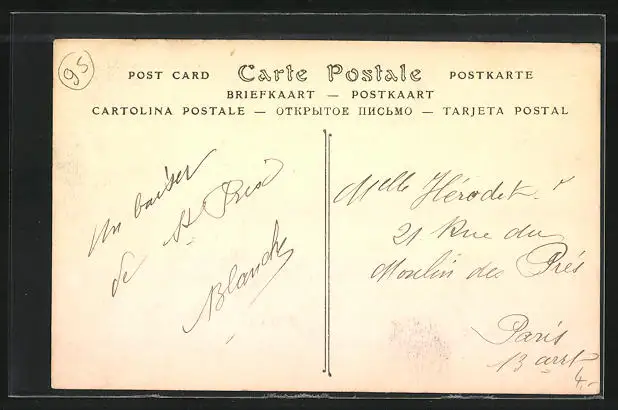 95
POST CARD Carte Postale POSTKARTE
BRIEFKAART — POSTKAART
CARTOLINA POSTALE — ОТКРЫТОЕ ПИСЬМО — TARJETA POSTAL
Un baiser
de St Prix
Blanche
Melle Hérodet
21 Rue du
Moulin des Prés
Paris
13 arrt
4.-